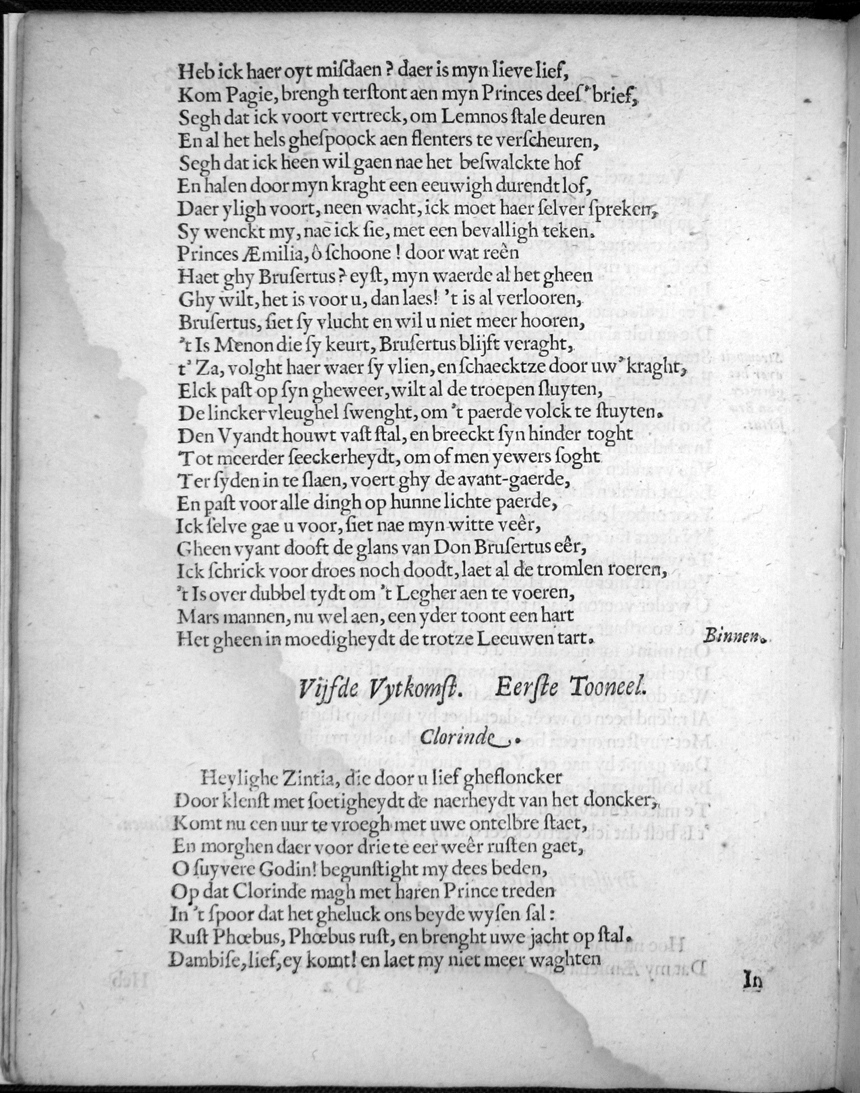 Heb ick haer oyt misdaen? daer is myn lieve lief,
Kom Pagie, brengh terstont aen myn Princes dees' brief,
Segh dat ick voort vertreck, om Lemnos stale deuren
En al het hels ghespoock aen flenters te verscheuren,
Segh dat ick heen wil gaen nae het beswalckte hof
En halen door myn kraght een eeuwigh durendt lof,
Daer yligh voort, neen wacht, ick moet haer selver spreken,
Sy wenckt my, nae ick sie, met een bevalligh teken.
Princes Æmilia, ô schoone! door wat reên
Haet ghy Brusertus? eyst, myn waerde al het gheen
Ghy wilt, het is voor u, dan laes! 't is al verlooren,
Brusertus, siet sy vlucht en wil u niet meer hooren,
't Is Menon die sy keurt, Brusertus blijft veraght,
t' Za, volght haer waer sy vlien, en schaecktze door uw' kraght,
Elck past op syn gheweer, wilt al de troepen sluyten,
De lincker vleughel swenght, om 't paerde volck te stuyten.
Den Vyandt houwt vast stal, en breeckt syn hinder toght
Tot meerder seeckerheydt, om of men yewers soght
Ter syden in te slaen, voert ghy de avant-gaerde,
En past voor alle dingh op hunne lichte paerde,
Ick selve gae u voor, siet nae myn witte veêr,
Gheen vyant dooft de glans van Don Brusertus eêr,
Ick schrick voor droes noch doodt, laet al de tromlen roeren,
't Is over dubbel tydt om 't Legher aen te voeren,
Mars mannen, nu wel aen, een yder toont een hart
Het gheen in moedigheydt de trotze Leeuwen tart. Binnen.
Vijfde Vytkomst. Eerste Tooneel.
Clorinde.
Heylighe Zintia, die door u lief ghefloncker
Door klenst met soetigheydt de naerheydt van het doncker,
Komt nu een uur te vroegh met uwe ontelbre staet,
En morghen daer voor drie te eer weêr rusten gaet,
O suyvere Godin! begunstight my dees beden,
Op dat Clorinde magh met haren Prince treden
In 't spoor dat het gheluck ons beyde wysen sal:
Rust Phœbus, Phœbus rust, en brenght uwe jacht op stal.
Dambise, lief, ey komt! en laet my niet meer waghten
In